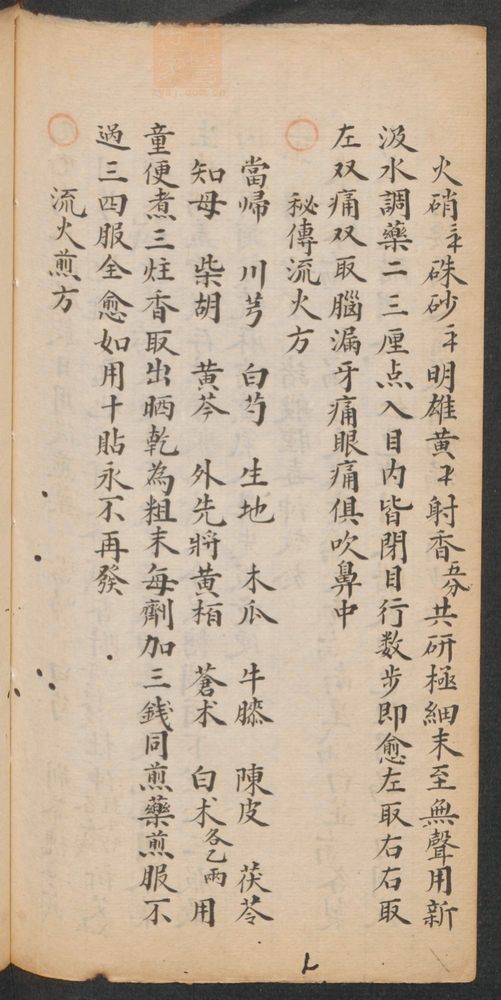 火硝三子硃砂二子明雄黃一子射香五分共研極細末至無聲用新
汲水調藥二三厘点入目内眥閉目行数步即愈左取右右取
左双痛双取腦漏牙痛眼痛俱吹鼻中
秘傳流火方
當歸 川芎 白芍 生地 木瓜 牛膝 陳皮 茯苓
知母 柴胡 黄芩 外先將黄栢 蒼术 白术各乙兩用
童便煮三炷香取出晒乾為粗末每劑加三銭同煎藥煎服不
過三四服全愈如用十貼永不再發
流火煎方
zydj.com.cn